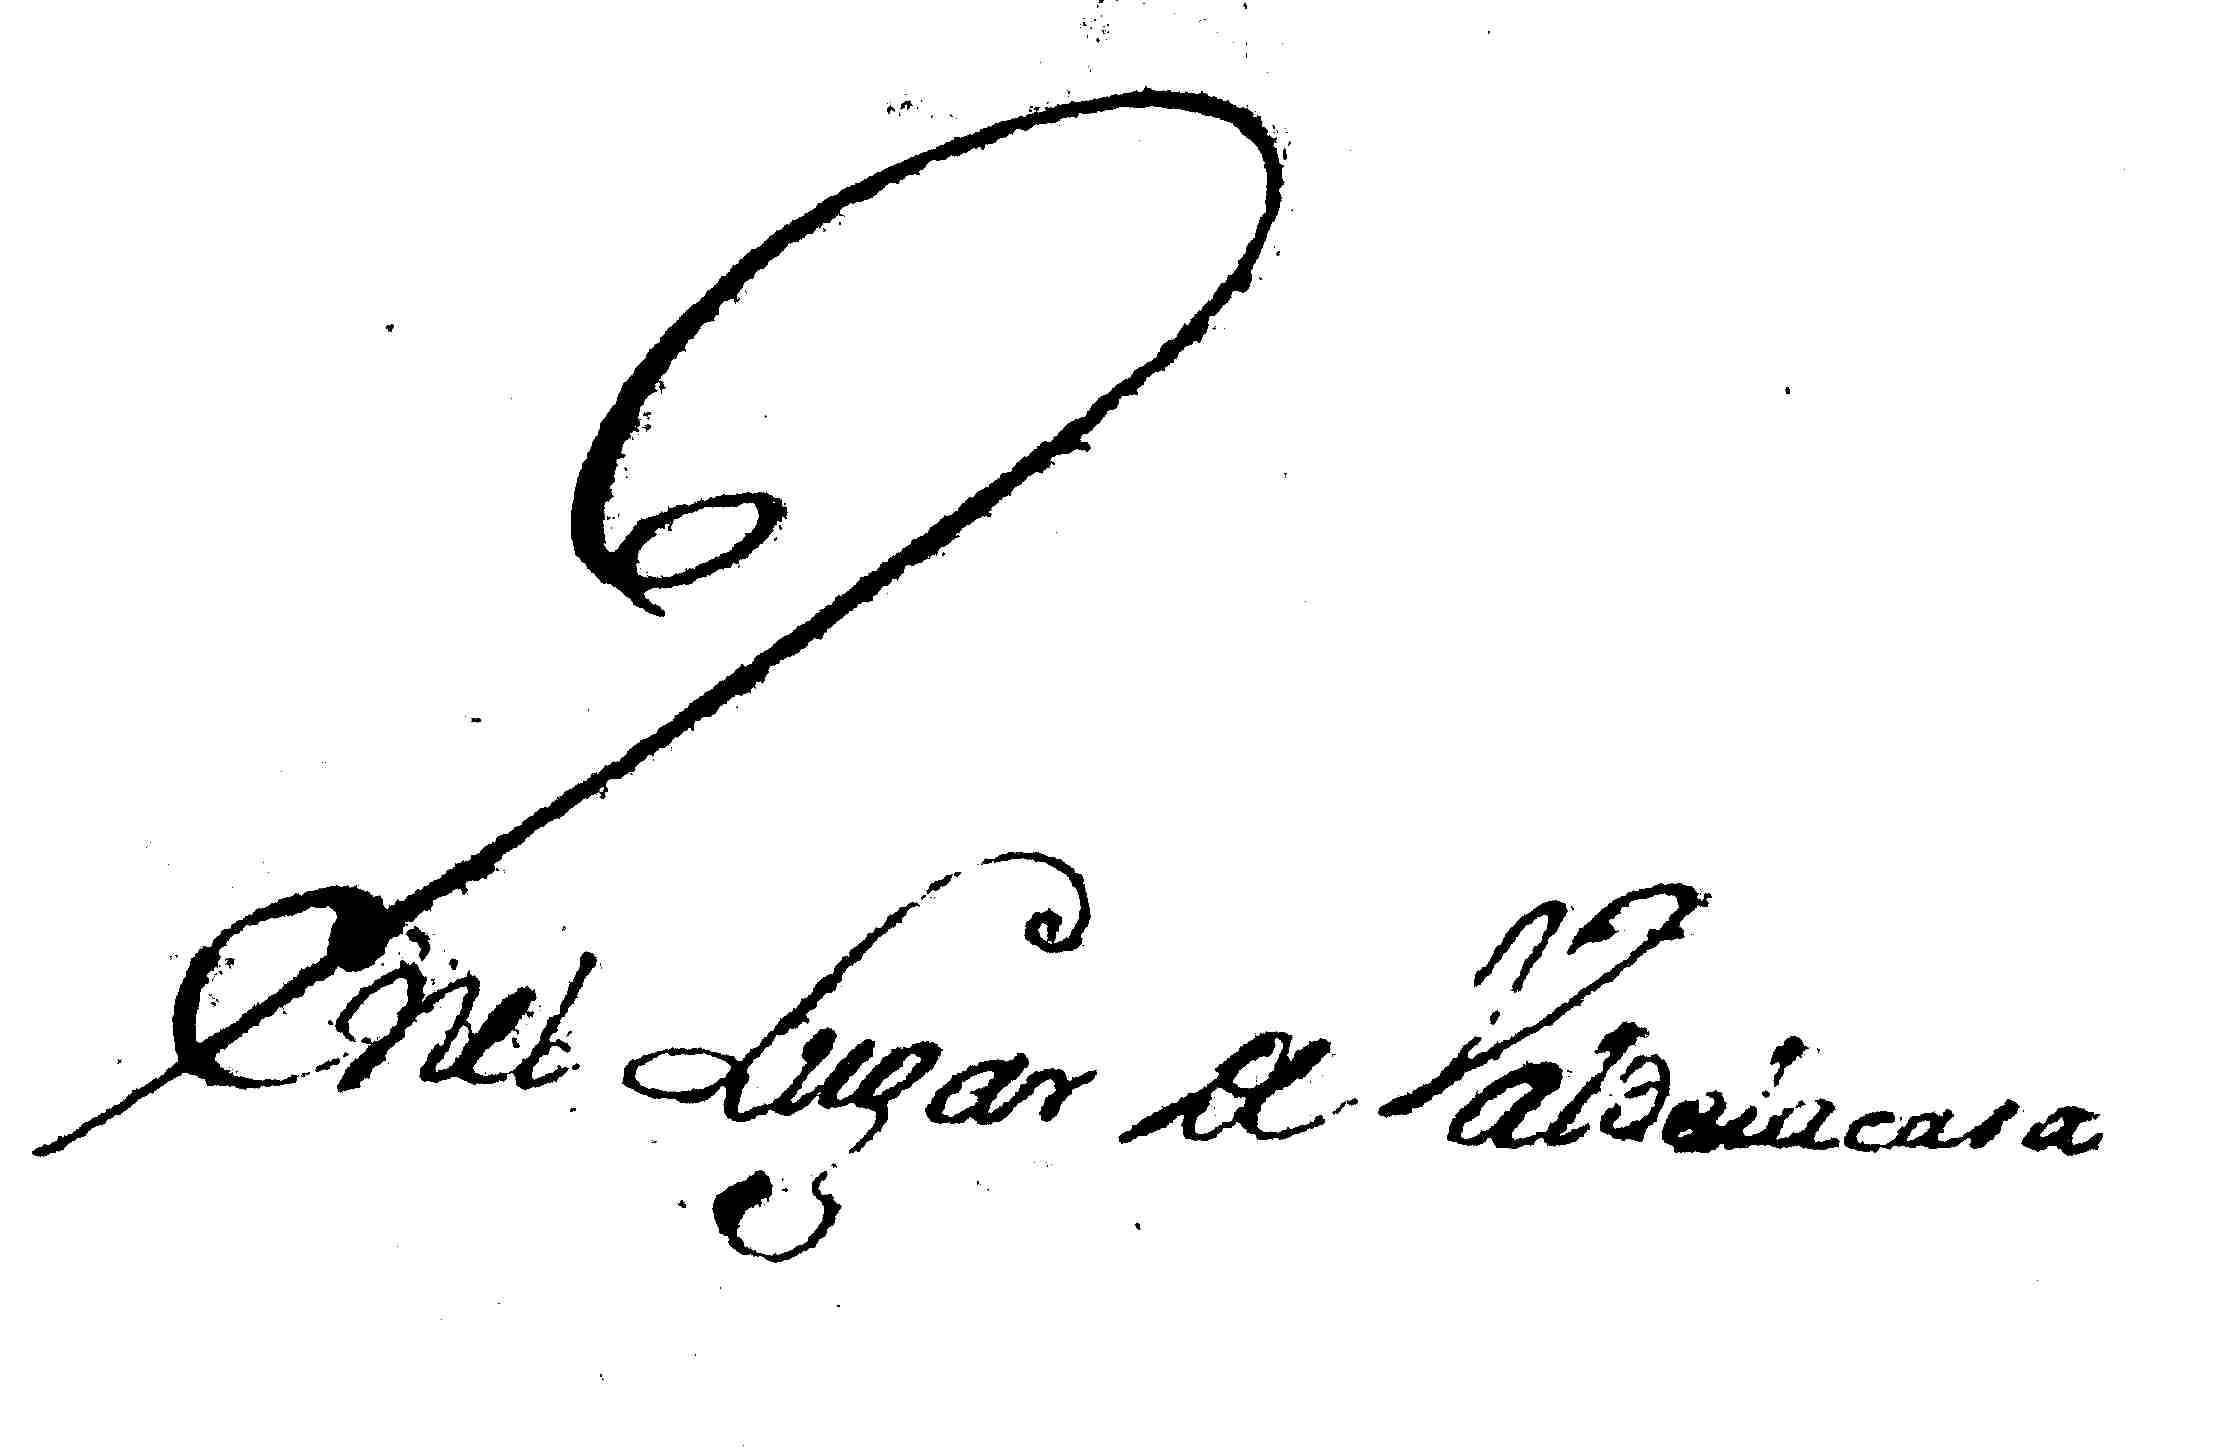 Enel Lugar de Valdeiacasa